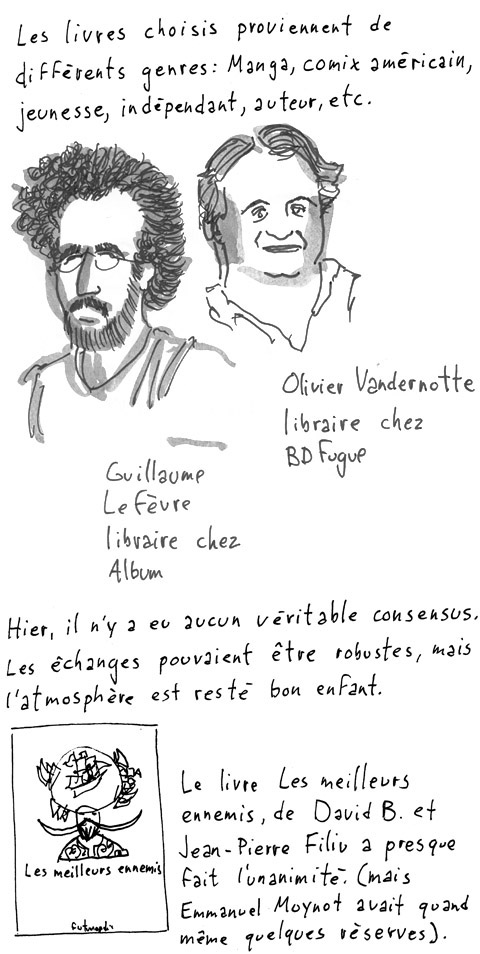 Les livres choisis proviennent de
différents genres: Manga, comix américain,
jeunesse, indépendant, auteur, etc.
Olivier Vandernotte
libraire chez
BD Fugue
Guillaume
Le Fèvre
libraire chez
Album
Hier, il n'y a eu aucun véritable consensus.
Les échanges pouvaient être robustes, mais
l'atmosphère est resté bon enfant.
Les meilleurs ennemis
futuropolis
Le livre Les meilleurs
ennemis, de David B. et
Jean-Pierre Filiu a presque
fait l'unanimité. (mais
Emmanuel Moynot avait quand
même quelques réserves).